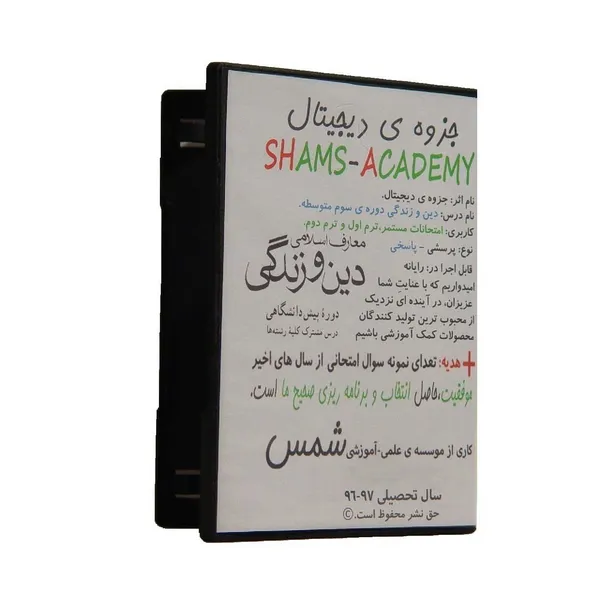 جزوه ی دیجیتال
SHAMS-ACADEMY
نام اثر: جزوه ی دیجیتال.
نام درس: دین و زندگی دوره ی سوم متوسطه.
کاربری: امتحانات مستمر،ترم اول و ترم دوم.
نوع: پرسشی - پاسخی
قابل اجرا در: رایانه
امیدواریم که با عنایت شما
عزیزان، در آینده ای نزدیک
از محبوب ترین تولید کنندگان
محصولات کمک آموزشی باشیم
معارف اسلامی
دین و زندگی
دورهٔ پیش‌دانشگاهی
درس مشترک کلیهٔ رشته‌ها
+هدیه: تعدای نمونه سوال امتحانی از سال های اخیر
موفقیت،حاصل انتخاب و برنامه ریزی صحیح ما است.
کاری از موسسه ی علمی-آموزشی شمس
سال تحصیلی ۹۷-۹۶
حق نشر محفوظ است.©